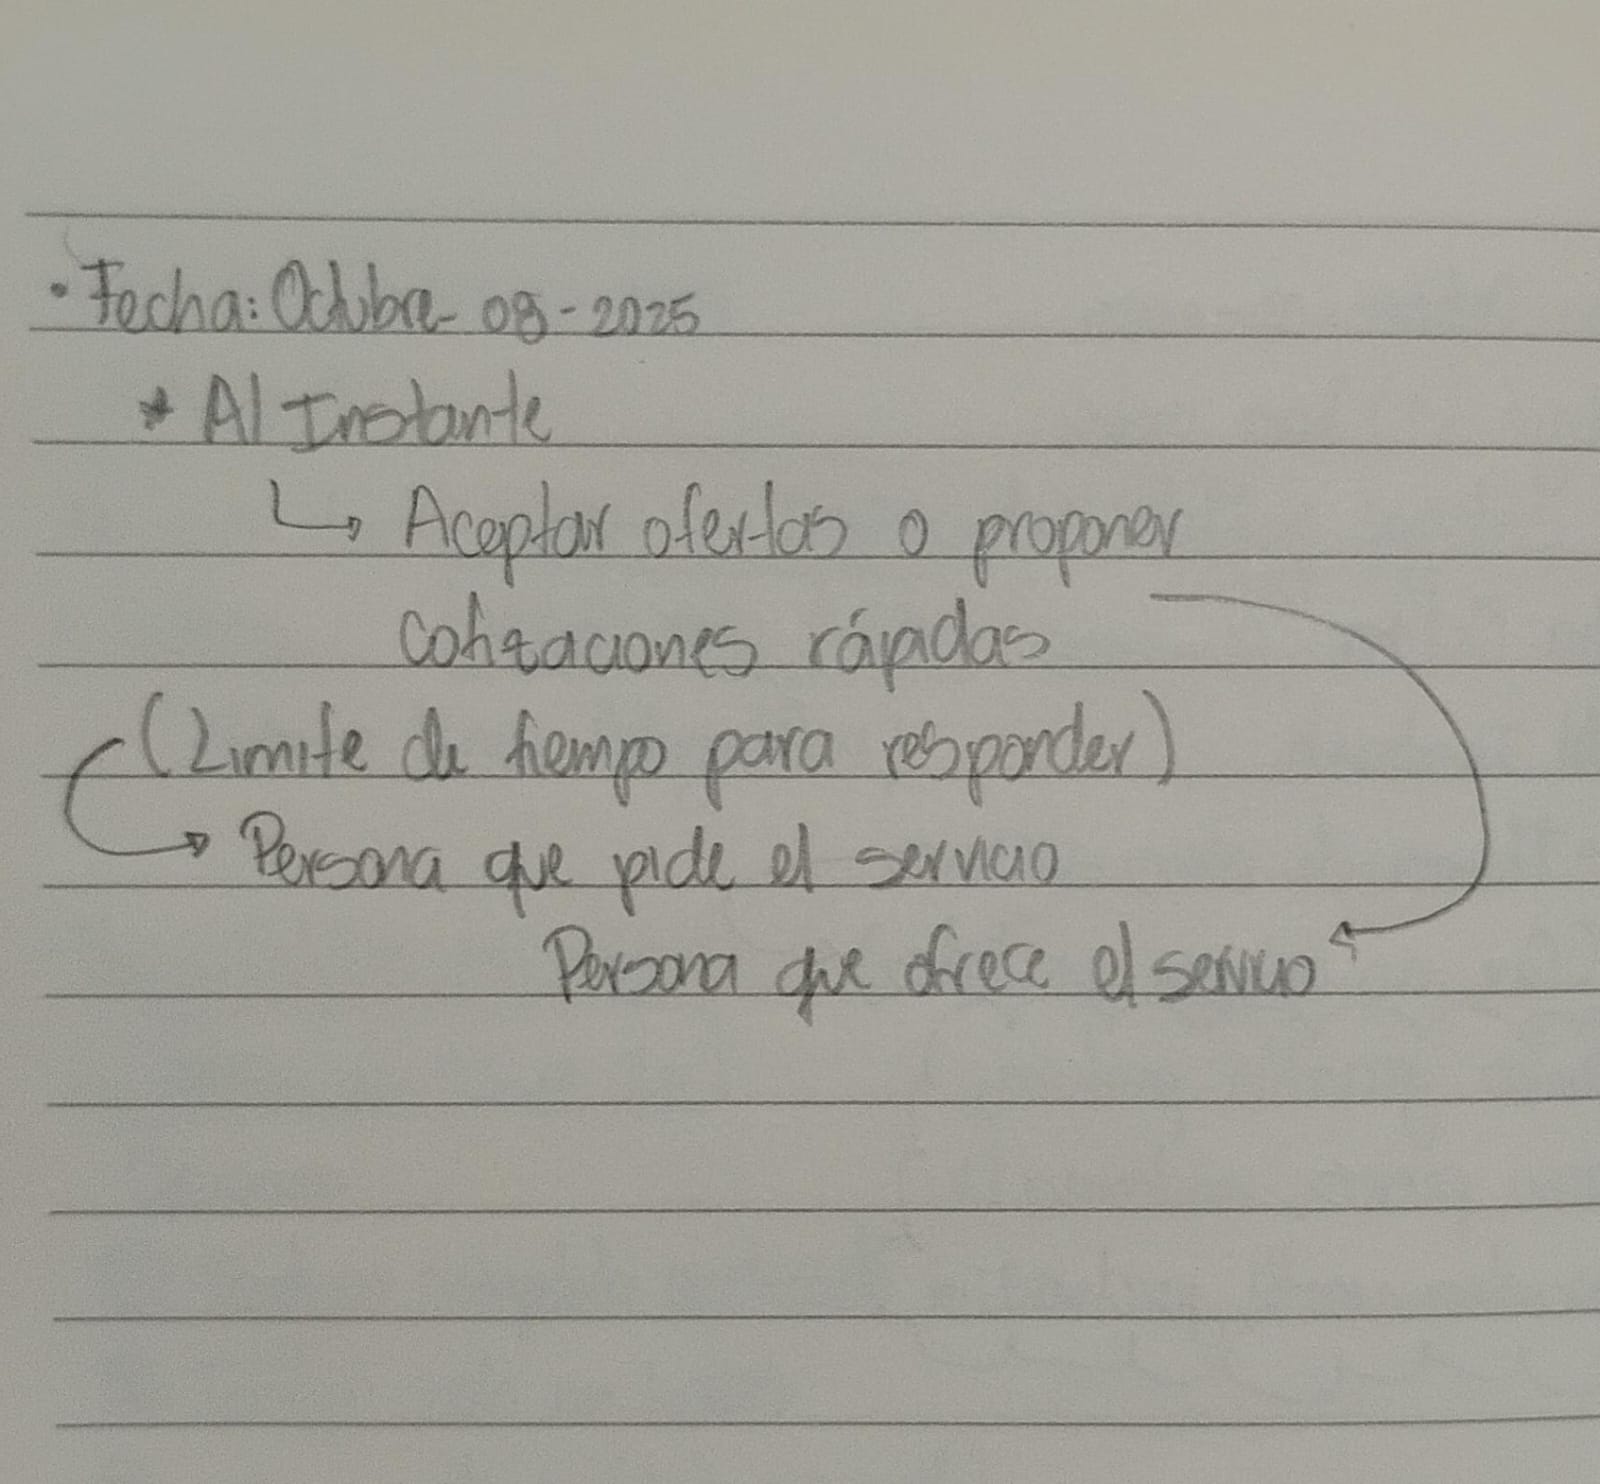 • Fecha: Octubre - 08 - 2025
* Al Instante
↳ Aceptar ofertas o proponer
cotizaciones rápidas
(Limite de tiempo para responder)
→ Persona que pide el servicio
Persona que ofrece el servicio